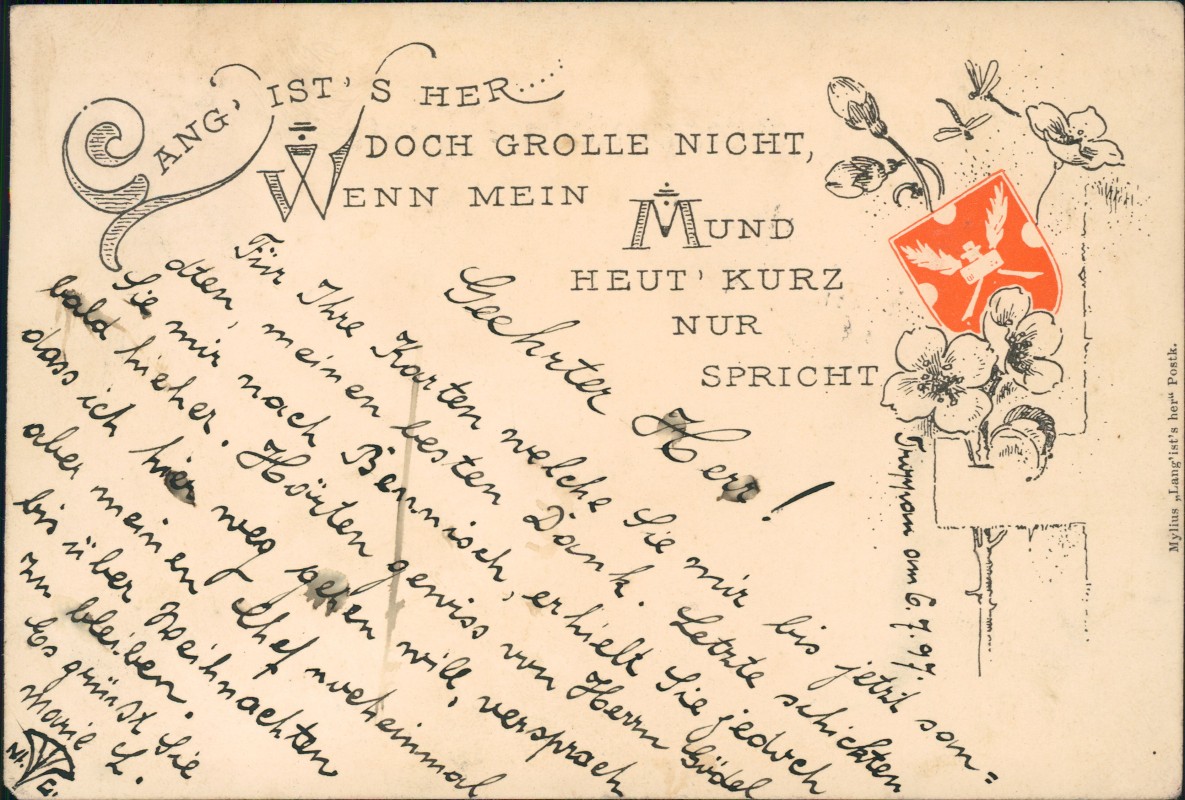 LANG' IST'S HER....
DOCH GROLLE NICHT,
WENN MEIN
MUND
HEUT' KURZ
NUR
SPRICHT
Geehrter Herr!
Für Ihre Karten welche Sie mir bis jetzt son=
dten, meinen besten Dank. Letzte schickten
Sie mir nach Bennisch, erhielt Sie jedoch
bald hieher. Hörten gewiss von Herrn Gödel
dass ich hier weg gehen will, versprach
aber meinen Chef nocheinmal
bis über Weihnachten
zu bleiben.
Es grüsst Sie
Marie L.
am 6.9.97.
Mylius „Lang'ist's her“ Postk.